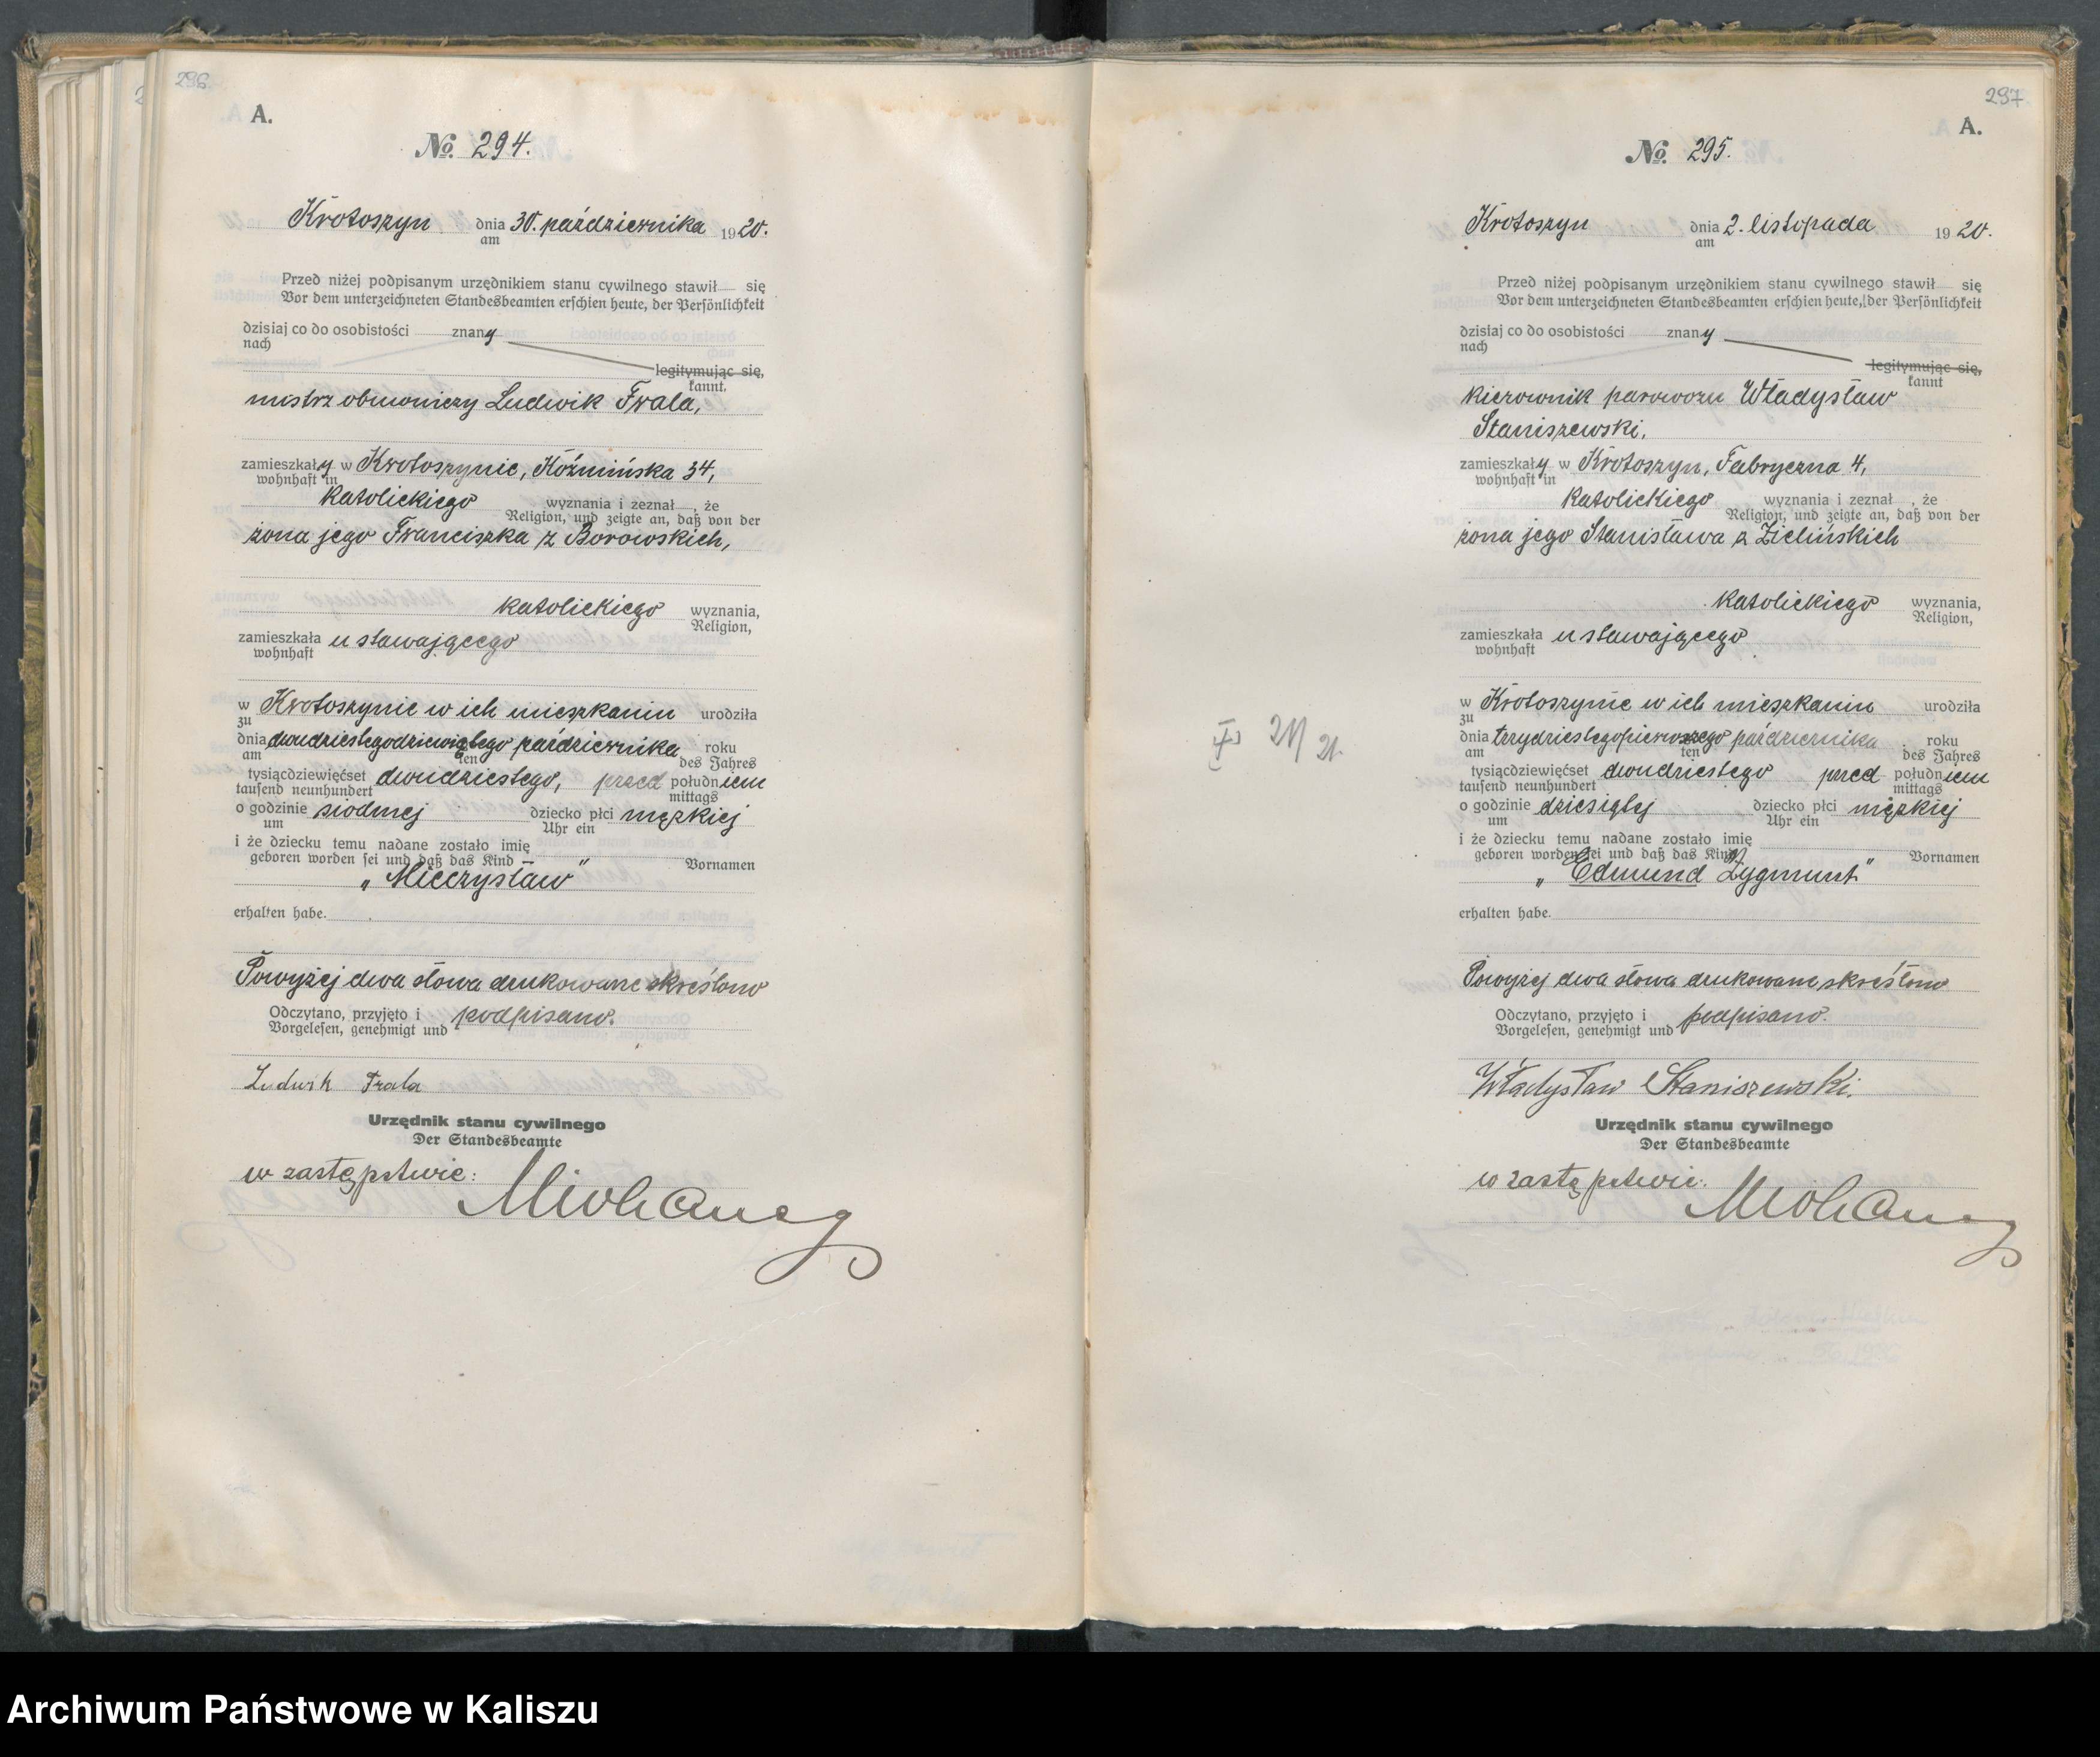 296.
A.
No. 294.
Krotoszyn dnia 30. października 1920.
am
Przed niżej podpisanym urzędnikiem stanu cywilnego stawił się
Vor dem unterzeichneten Standesbeamten erschien heute, der Persönlichkeit
dzisiaj co do osobistości znany
nach
legitymując się,
kannt,
mistrz obuwniczy Ludwik Frala,
zamieszkały w Krotoszynie, Koźmińska 34,
wohnhaft in
katolickiego wyznania i zeznał , że
Religion, und zeigte an, daß von der
żona jego Franciszka z Borowskich,
katolickiego wyznania,
Religion,
zamieszkała u stawającego
wohnhaft
w Krotoszynie w ich mieszkaniu urodziła
zu
dnia dwudziestegodziewiątego października roku
am ten des Jahres
tysiącdziewięćset dwudziestego, przed południem
tausend neunhundert mittags
o godzinie siódmej dziecko płci męzkiej
um Uhr ein
i że dziecku temu nadane zostało imię
geboren worden sei und daß das Kind Vornamen
„Mieczysław"
erhalten habe.
Powyżej dwa słowa drukowane skreślono
Odczytano, przyjęto i podpisano.
Vorgelesen, genehmigt und
Ludwik Frala
Urzędnik stanu cywilnego
Der Standesbeamte
w zastępstwie:
297
A.
No. 295.
Krotoszyn dnia 2. listopada 1920.
am
Przed niżej podpisanym urzędnikiem stanu cywilnego stawił się
Vor dem unterzeichneten Standesbeamten erschien heute, der Persönlichkeit
dzisiaj co do osobistości znany
nach
legitymując się,
kannt
kierownik parowozu Władysław
Staniszewski,
zamieszkały w Krotoszyn, Fabryczna 4,
wohnhaft in
katolickiego wyznania i zeznał , że
Religion, und zeigte an, daß von der
żona jego Stanisława z Zielińskich
katolickiego wyznania,
Religion,
zamieszkała u stawającego
wohnhaft
w Krotoszynie w ich mieszkaniu urodziła
zu
dnia trzydziestegopierwszego października roku
am ten des Jahres
tysiącdziewięćset dwudziestego przed południem
tausend neunhundert mittags
o godzinie dziesiątej dziecko płci męzkiej
um Uhr ein
i że dziecku temu nadane zostało imię
geboren worden sei und daß das Kind Vornamen
„Edmund Zygmunt"
erhalten habe.
Powyżej dwa słowa drukowane skreślono
Odczytano, przyjęto i podpisano.
Vorgelesen, genehmigt und
Władysław Staniszewski.
Urzędnik stanu cywilnego
Der Standesbeamte
w zastępstwie:
Archiwum Państwowe w Kaliszu